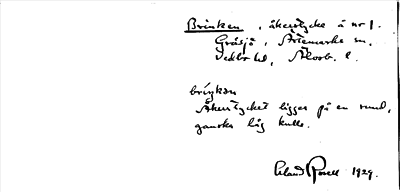 Brinken, åkerstycke å nr 1.
Gräsjö, Ärtemarks sn,
Vedbo hd, Älvsb. l.
brı́ŋkən
Åkerstycket ligger på en rund,
ganska låg kulle.
Erland Rosell 1929.